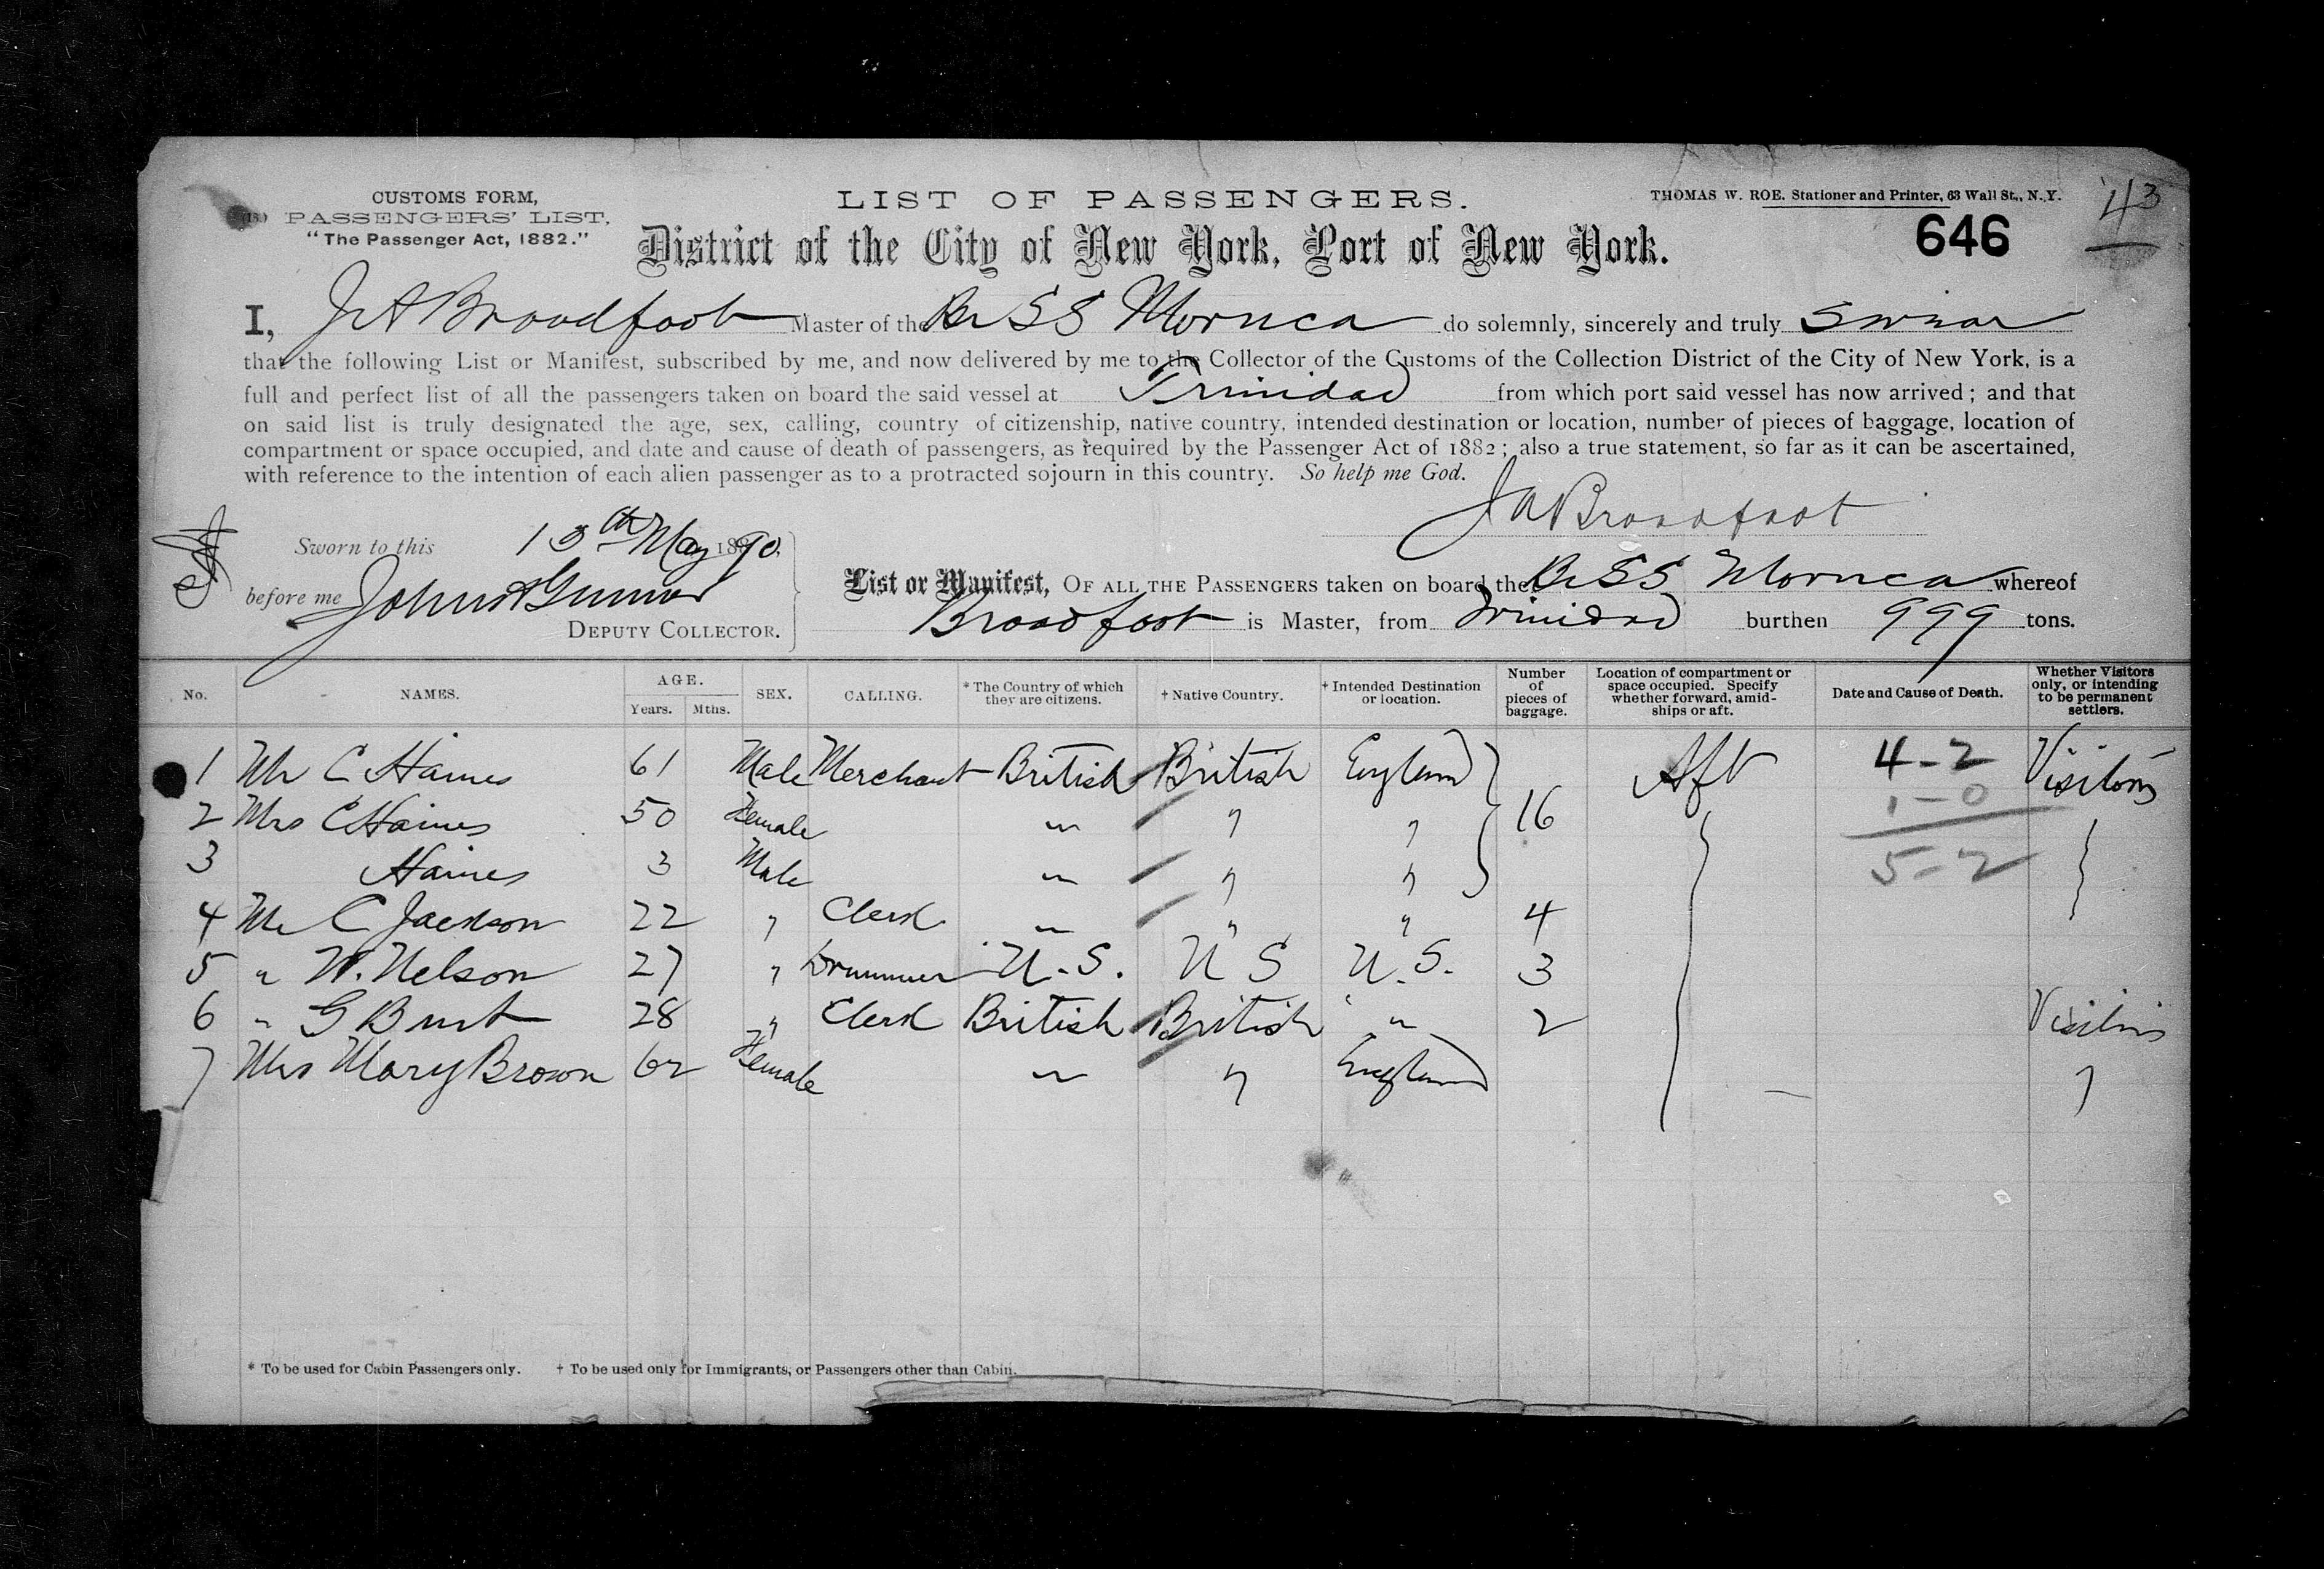 CUSTOMS FORM,
PASSENGERS' LIST,
"The Passenger Act, 1882."
LIST OF PASSENGERS.
THOMAS W. ROE. Stationer and Printer, 63 Wall St., N.Y.
43
District of the City of New York, Port of New York.
646
I, J A Broadfoot Master of the Br SS Moruca do solemnly, sincerely and truly swear
that the following List or Manifest, subscribed by me, and now delivered by me to the Collector of the Customs of the Collection District of the City of New York, is a
full and perfect list of all the passengers taken on board the said vessel at Trinidad from which port said vessel has now arrived; and that
on said list is truly designated the age, sex, calling, country of citizenship, native country, intended destination or location, number of pieces of baggage, location of
compartment or space occupied, and date and cause of death of passengers, as required by the Passenger Act of 1882; also a true statement, so far as it can be ascertained,
with reference to the intention of each alien passenger as to a protracted sojourn in this country. So help me God.
J A Broadfoot
Sworn to this 13th May 1890
before me John
DEPUTY COLLECTOR.
List or Manifest, OF ALL THE PASSENGERS taken on board the Br SS Moruca whereof
Broadfoot is Master, from Trinidad burthen 999 tons.
No. NAMES. AGE. Years. Mths. SEX. CALLING. * The Country of which they are citizens. † Native Country. † Intended Destination or location. Number of pieces of baggage. Location of compartment or space occupied. Specify whether forward, amidships or aft. Date and Cause of Death. Whether Visitors only, or intending to be permanent settlers.
1 Mr C Haines 61 Male Merchant British British England Aft 4-2 Visitors
2 Mrs C Haines 50 Female " " " 16 1-0
3 Haines 3 Male " " " 5-2
4 Mr C Jackson 22 " Clerk " " " 4
5 " W. Nelson 27 " Drummer U.S. U S U.S. 3
6 " G Burt 28 " Clerk British British " 2 Visitors
7 Mrs Mary Brown 62 Female " " England "
* To be used for Cabin Passengers only. † To be used only for Immigrants, or Passengers other than Cabin.